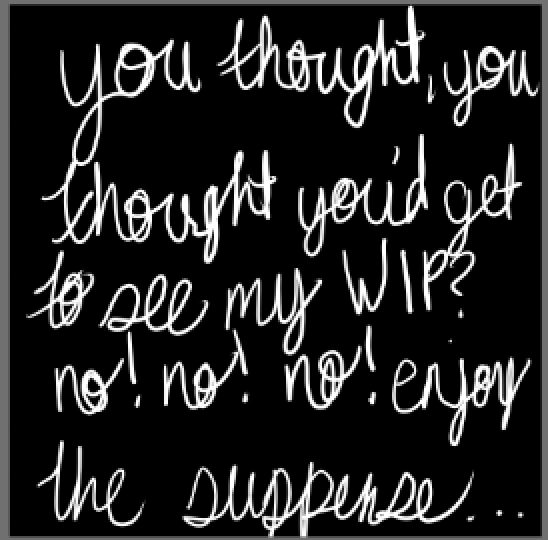 you thought, you
thought you'd get
to see my WIP?
no! no! no! enjoy
the suspense...